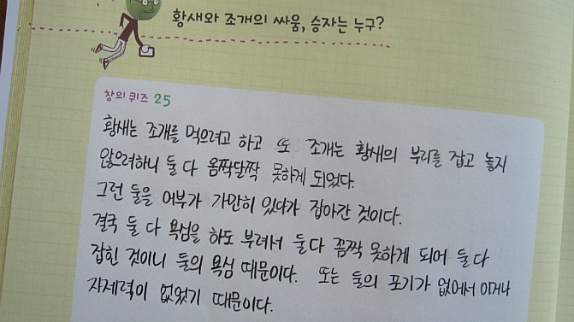 황새와 조개의 싸움, 승자는 누구?
창의 퀴즈 25
황새는 조개를 먹으려고 하고 또 조개는 황새의 부리를 잡고 놓지
않으려하니 둘 다 옴짝달짝 못하게 되었다.
그런 둘을 어부가 가만히 있다가 잡아간 것이다.
결국 둘 다 욕심을 하도 부려서 둘다 꼼짝 못하게 되어 둘 다
잡힌 것이니 둘의 욕심 때문이다. 또는 둘의 포기가 없어서 이거나
자제력이 없었기 때문이다.